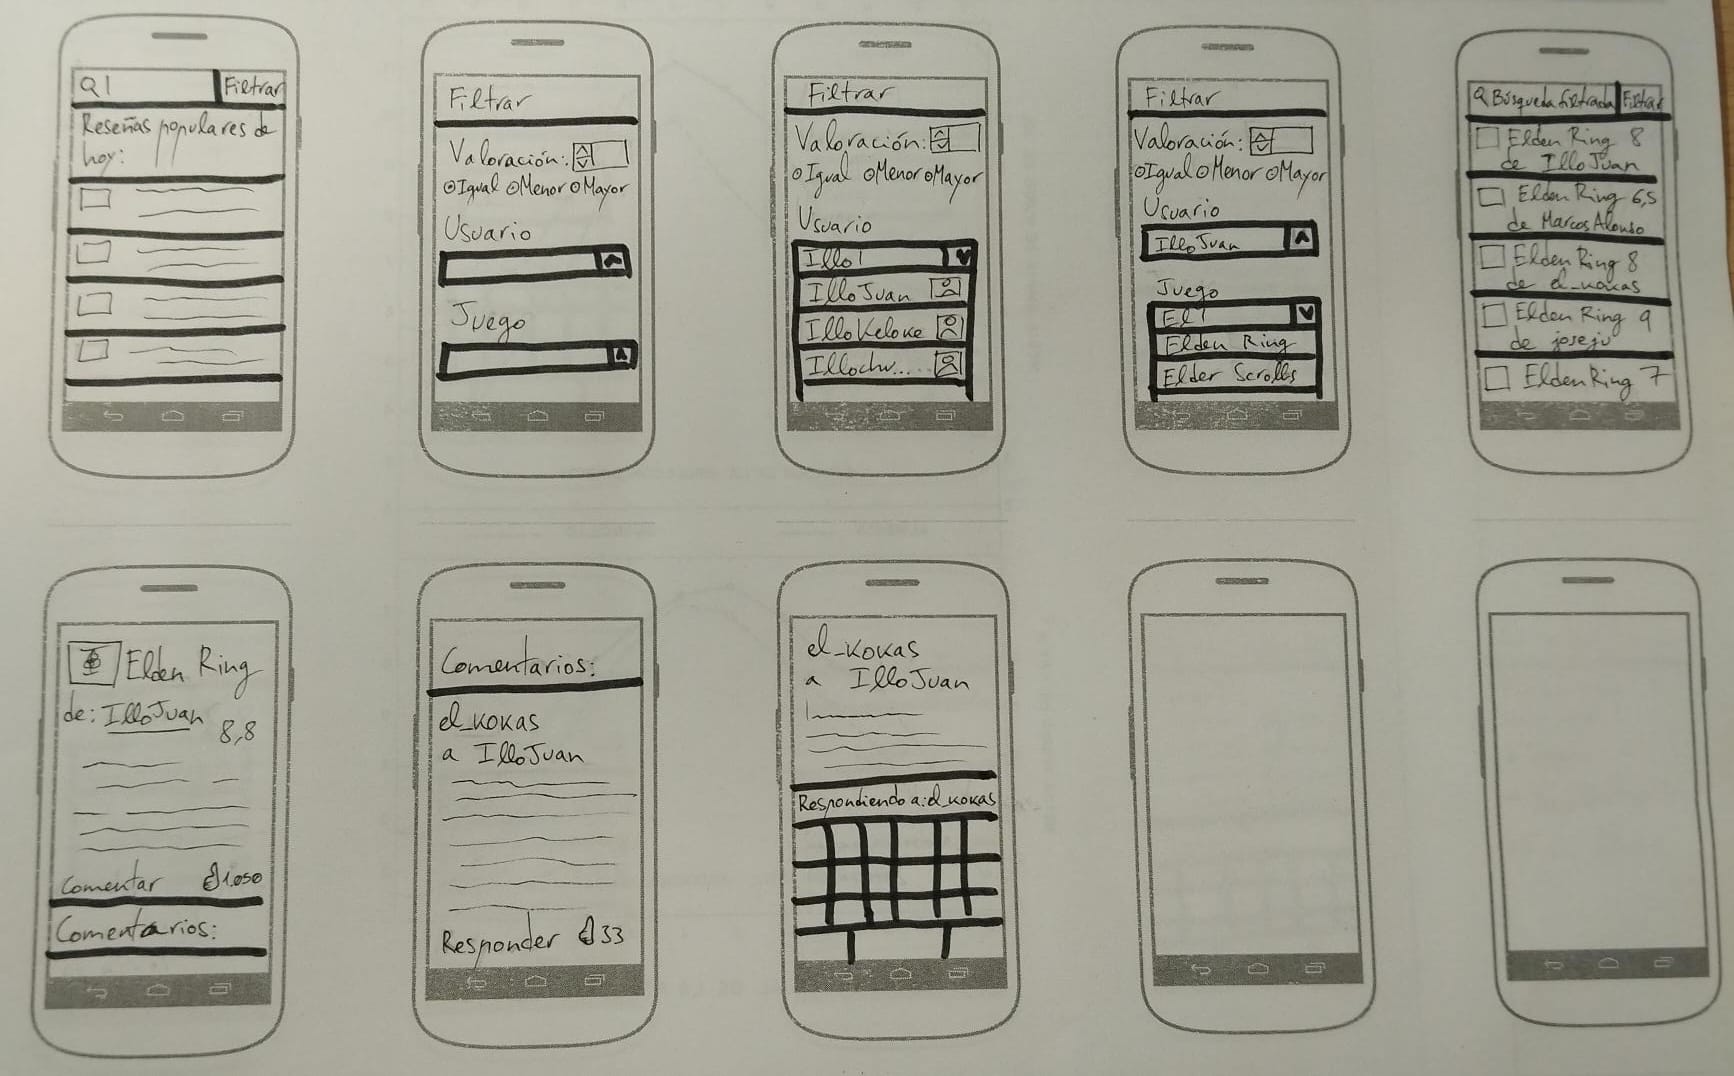 Q|
Filtrar
Reseñas populares de
hoy:
Filtrar
Valoración:
Igual Menor Mayor
Usuario
Juego
Filtrar
Valoración:
Igual Menor Mayor
Usuario
Illo|
IlloJuan
IlloKeloke
Illochu...
Filtrar
Valoración:
Igual Menor Mayor
Usuario
IlloJuan
Juego
El|
Elden Ring
Elder Scrolls
Búsqueda filtrada
Filtrar
Elden Ring 8
de IlloJuan
Elden Ring 6,5
de Marcos Alonso
Elden Ring 8
de el_kokas
Elden Ring 9
de joseju
Elden Ring 7
Elden Ring
de: IlloJuan
8,8
Comentar 1.050
Comentarios:
Comentarios:
el_kokas
a IlloJuan
Responder 33
el_kokas
a IlloJuan
Respondiendo a: el_kokas